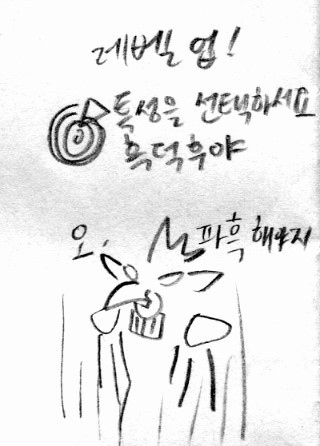 레벨 업!
특성을 선택하세요
흑덕후야
오,
파흑 해야지